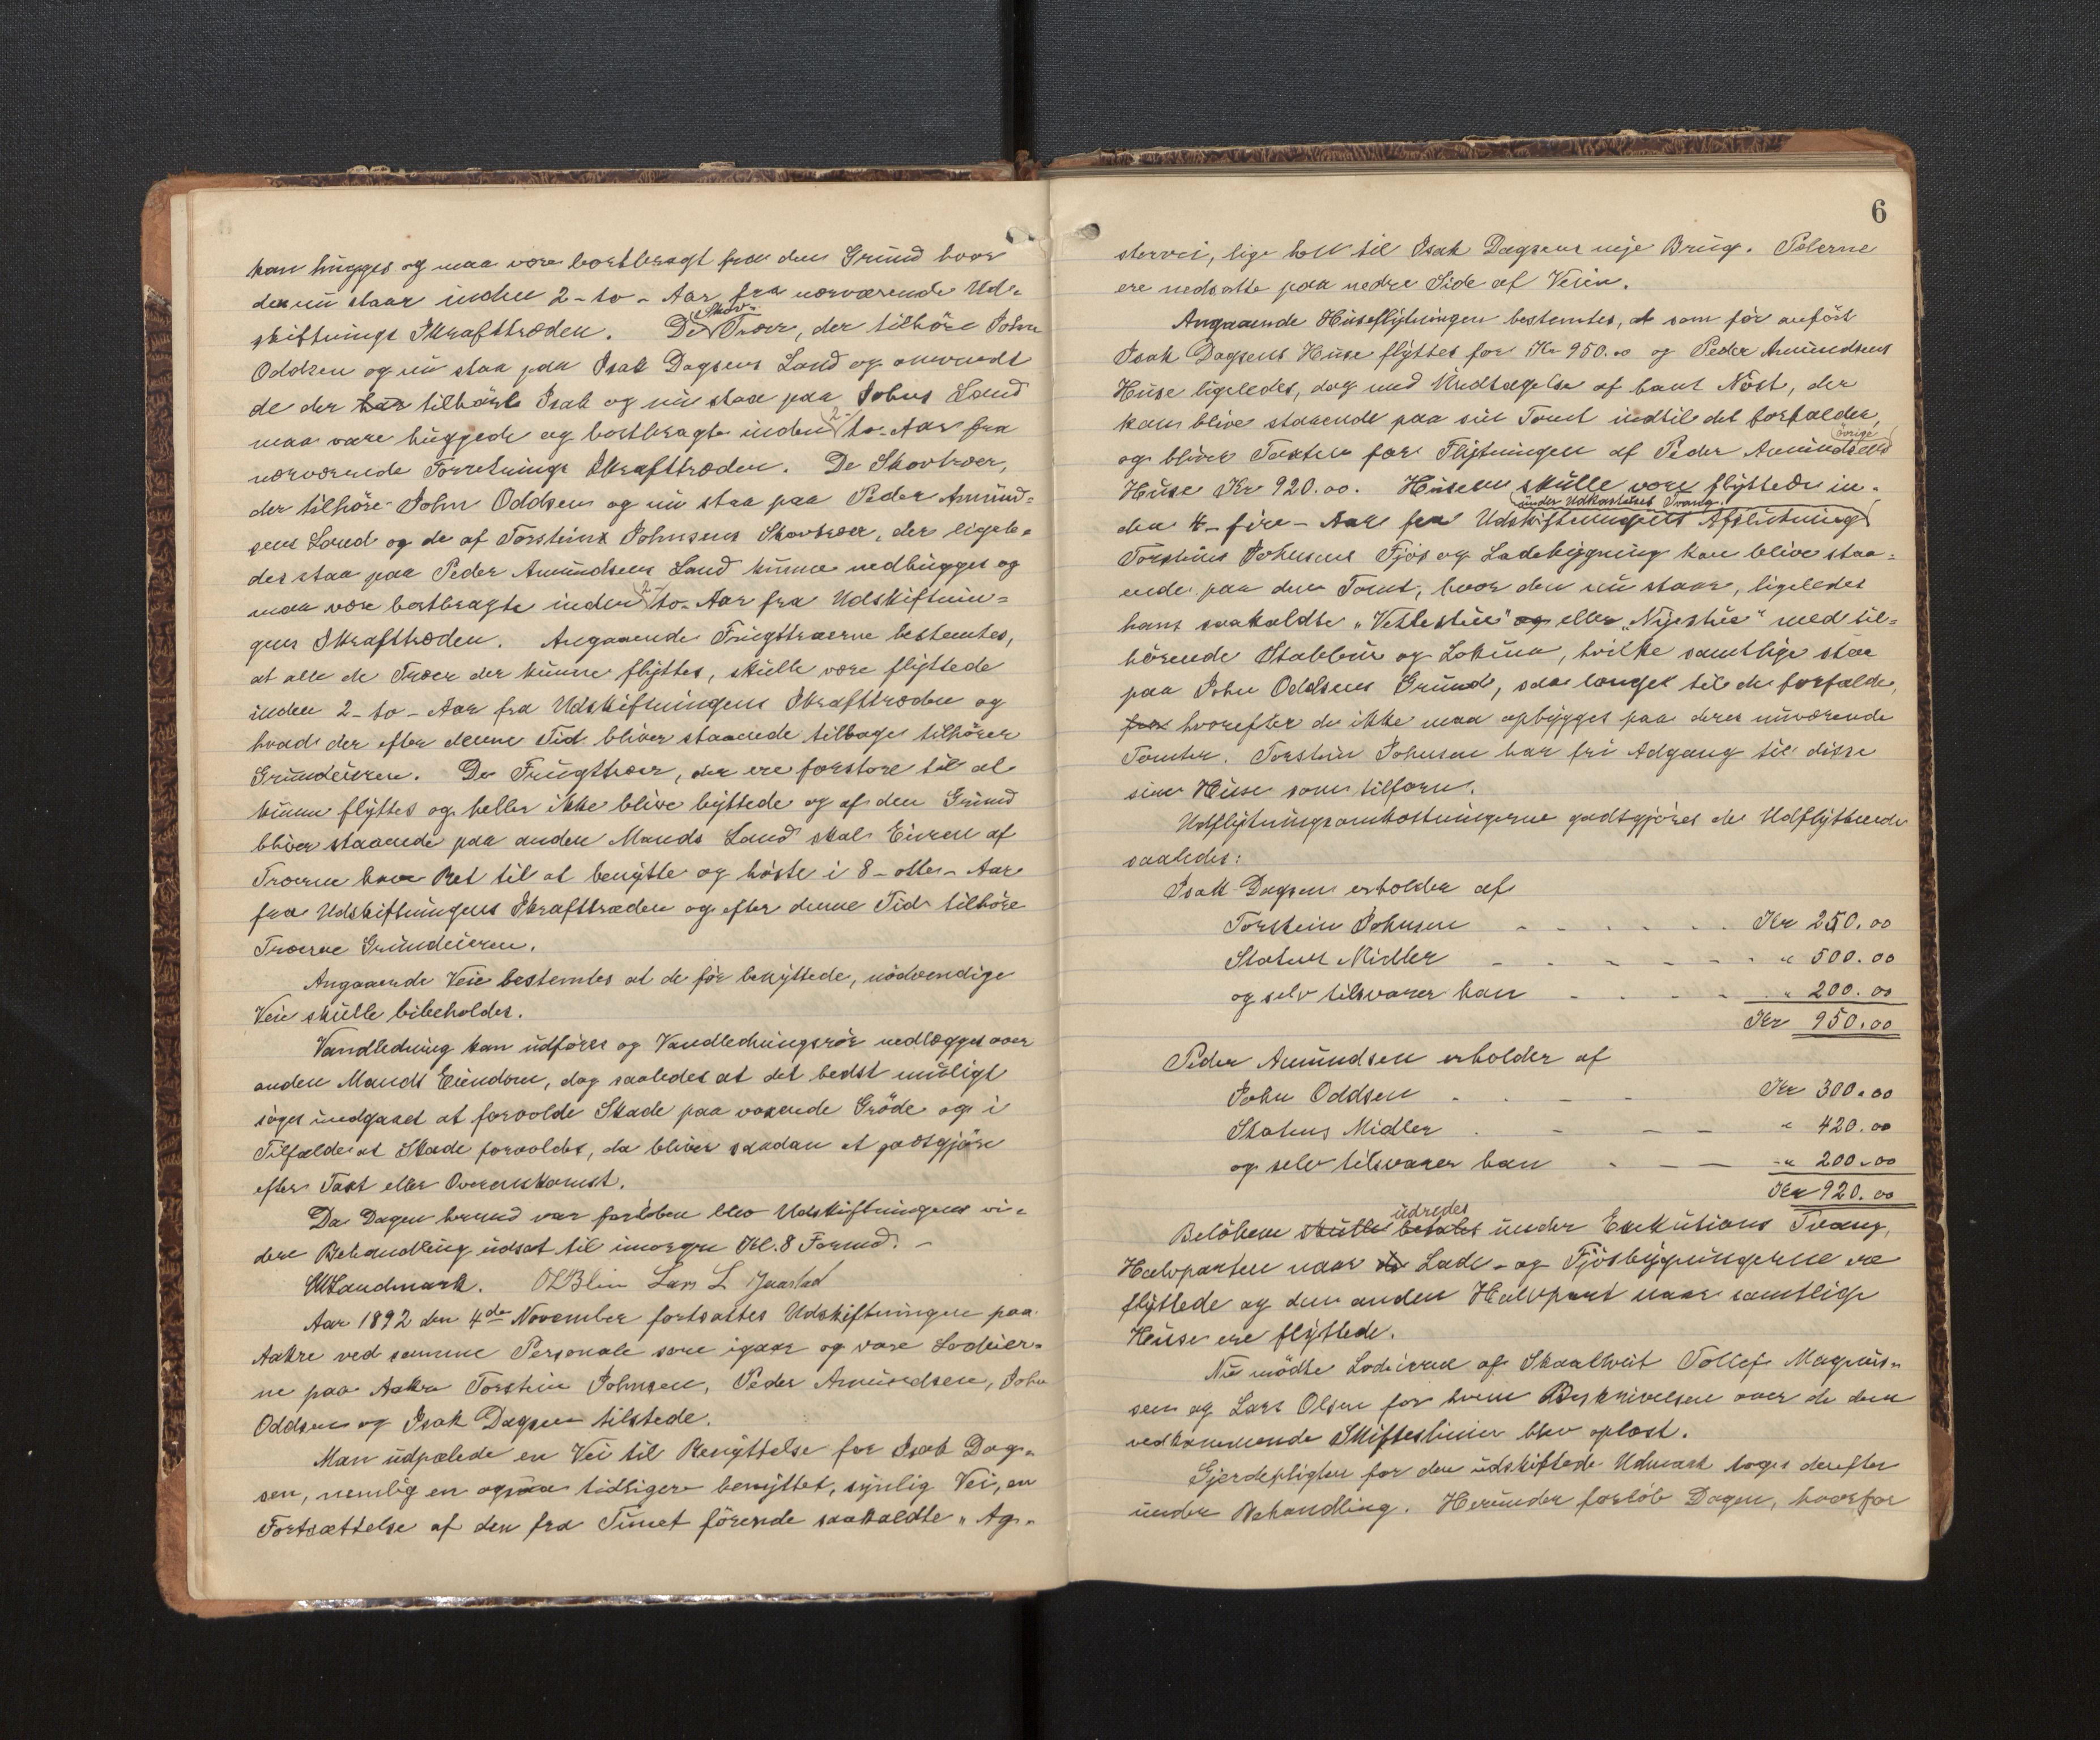 kan hugges og maa være bortbragt fra den Grund hvor
den nu staar inden 2 - to - Aar fra nærværende Ud-
skiftnings Ikrafttræden. De Skov-Træer, der tilhöre John
Oddsen og nu staa paa Isak Dagsens Land og omvendt
de der har tilhörte Isak og nu staa paa Johns Land
maa være huggede og bortbragte inden 2- to- Aar fra
nærværende Forretnings Ikrafttræden. De Skovtræer,
der tilhöre John Oddsen og nu staa paa Peder Amund-
sens Land og de af Torsteins Johnsens Skovtræer, der ligele-
des staa paa Peder Amundsens Land kunne nedhugges og
maa være bortbragte inden 2- to- Aar fra Udskiftnin-
gens Ikrafttræden. Angaaende Frugttræerne bestemtes,
at alle de Træer der kunne flyttes, skulle være flyttede
inden 2 - to - Aar fra Udskiftningens Ikrafttræden og
hvad der efter denne Tid bliver staaende tilbage tilhörer
Grundeieren. De Frugttræer, der ere forstore til at
kunne flyttes og heller ikke blive byttede og af den Grund
bliver staaende paa anden Mands Land skal Eieren af
Træerne have Ret til at benytte og höste i 8 - otte - Aar
fra Udskiftningens Ikrafttræden og efter denne Tid tilhöre
Træerne Grundeieren.
Angaaende Veie bestemtes at de för benyttede, nödvendige
Veie skulle bibeholdes.
Vandledning kan udföres og Vandledningsrör nedlægges over
anden Mands Eiendom, dog saaledes at det bedst muligt
söges undgaaet at forvolde Skade paa voxende Gröde og i
Tilfælde at Skade forvoldes, da bliver saadan at godtgjöre
efter Taxt eller Overenskomst.
Da Dagen herund var forlöben blev Udskiftningens vi-
dere Behandling udsat til imorgen Kl. 8 Formd. -
Landmark. Lars L Jaastad
Aar 1892 den 4de November fortsattes Udskiftningen paa
Aakre ved samme Personale som igaar og vare Lodeier-
ne paa Aakre Torstein Johnsen, Peder Amundsen, John
Oddsen og Isak Dagsen tilstede.
Man udpælede en Vei til Benyttelse for Isak Dag-
sen, nemlig en ogsaa tidligere benyttet, synlig Vei, en
Fortsættelse af den fra Tunet förende saakaldte „Ag-
6
stervei, lige hen til Isak Dagsens nye Brug. Pælerne
ere nedsatte paa nedre Side af Veien.
Angaaende Huseflytningen bestemtes, at som för anfört
Isak Dagsens Huse flyttes for Kr 950.00 og Peder Amundsens
Huse ligeledes, dog med Undtagelse af hans Nöst, der
kan blive staaende paa sin Tomt indtil det forfalder,
og bliver Taxten for Flytningen af Peder Amundsens övrige
Huse Kr 920.00. Husene skulle være flyttede in-
den 4 - fire - Aar fra Udskiftningens Afslutning under Udkastelses Tvang.
Torsteins Johnsens Fjös og Ladebygning kan blive staa-
ende paa den Tomt, hvor den nu staar, ligeledes
hans saakaldte „Vetlestue" og eller „Nyestue" med til-
hörende Stabbur og , hvilke samtlige staa
paa John Oddsens Grund, saa længe til de forfalde,
hvorefter de ikke maa opbygges paa deres nuværende
Tomter. Torstein Johnsen har fri Adgang til disse
sine Huse som tilforn.
Udflytningsomkostningerne godtgjöres de Udflyttende
saaledes:
Isak Dagsen erholder af
Torstein Johnsen - - - - - - Kr 250.00
Statens Midler - - - - - - " 500.00
og selv tilsvarer han - - - - - " 200.00
Kr 950.00
Peder Amundsen erholder af
John Oddsen - - - - Kr 300.00
Statens Midler - - - - " 420.00
og selv tilsvarer han - - - " 200.00
Kr 920.00
Belöbene skulle betales udredes under Exekutions Tvang,
Halvparten naar de Lade- og Fjösbygningerne ere
flyttede og den anden Halvpart naar samtlige
Huse ere flyttede.
Nu mödte Lodeierne af Skaaltveit Tollef Magnus-
sen og Lars Olsen for hvem Beskrivelsen over de dem
vedkommende Skifteslinier blev oplæst.
Gjerdepligten for den udskiftede Udmark toges derefter
under Behandling. Herunder forlöb Dagen, hvorfor